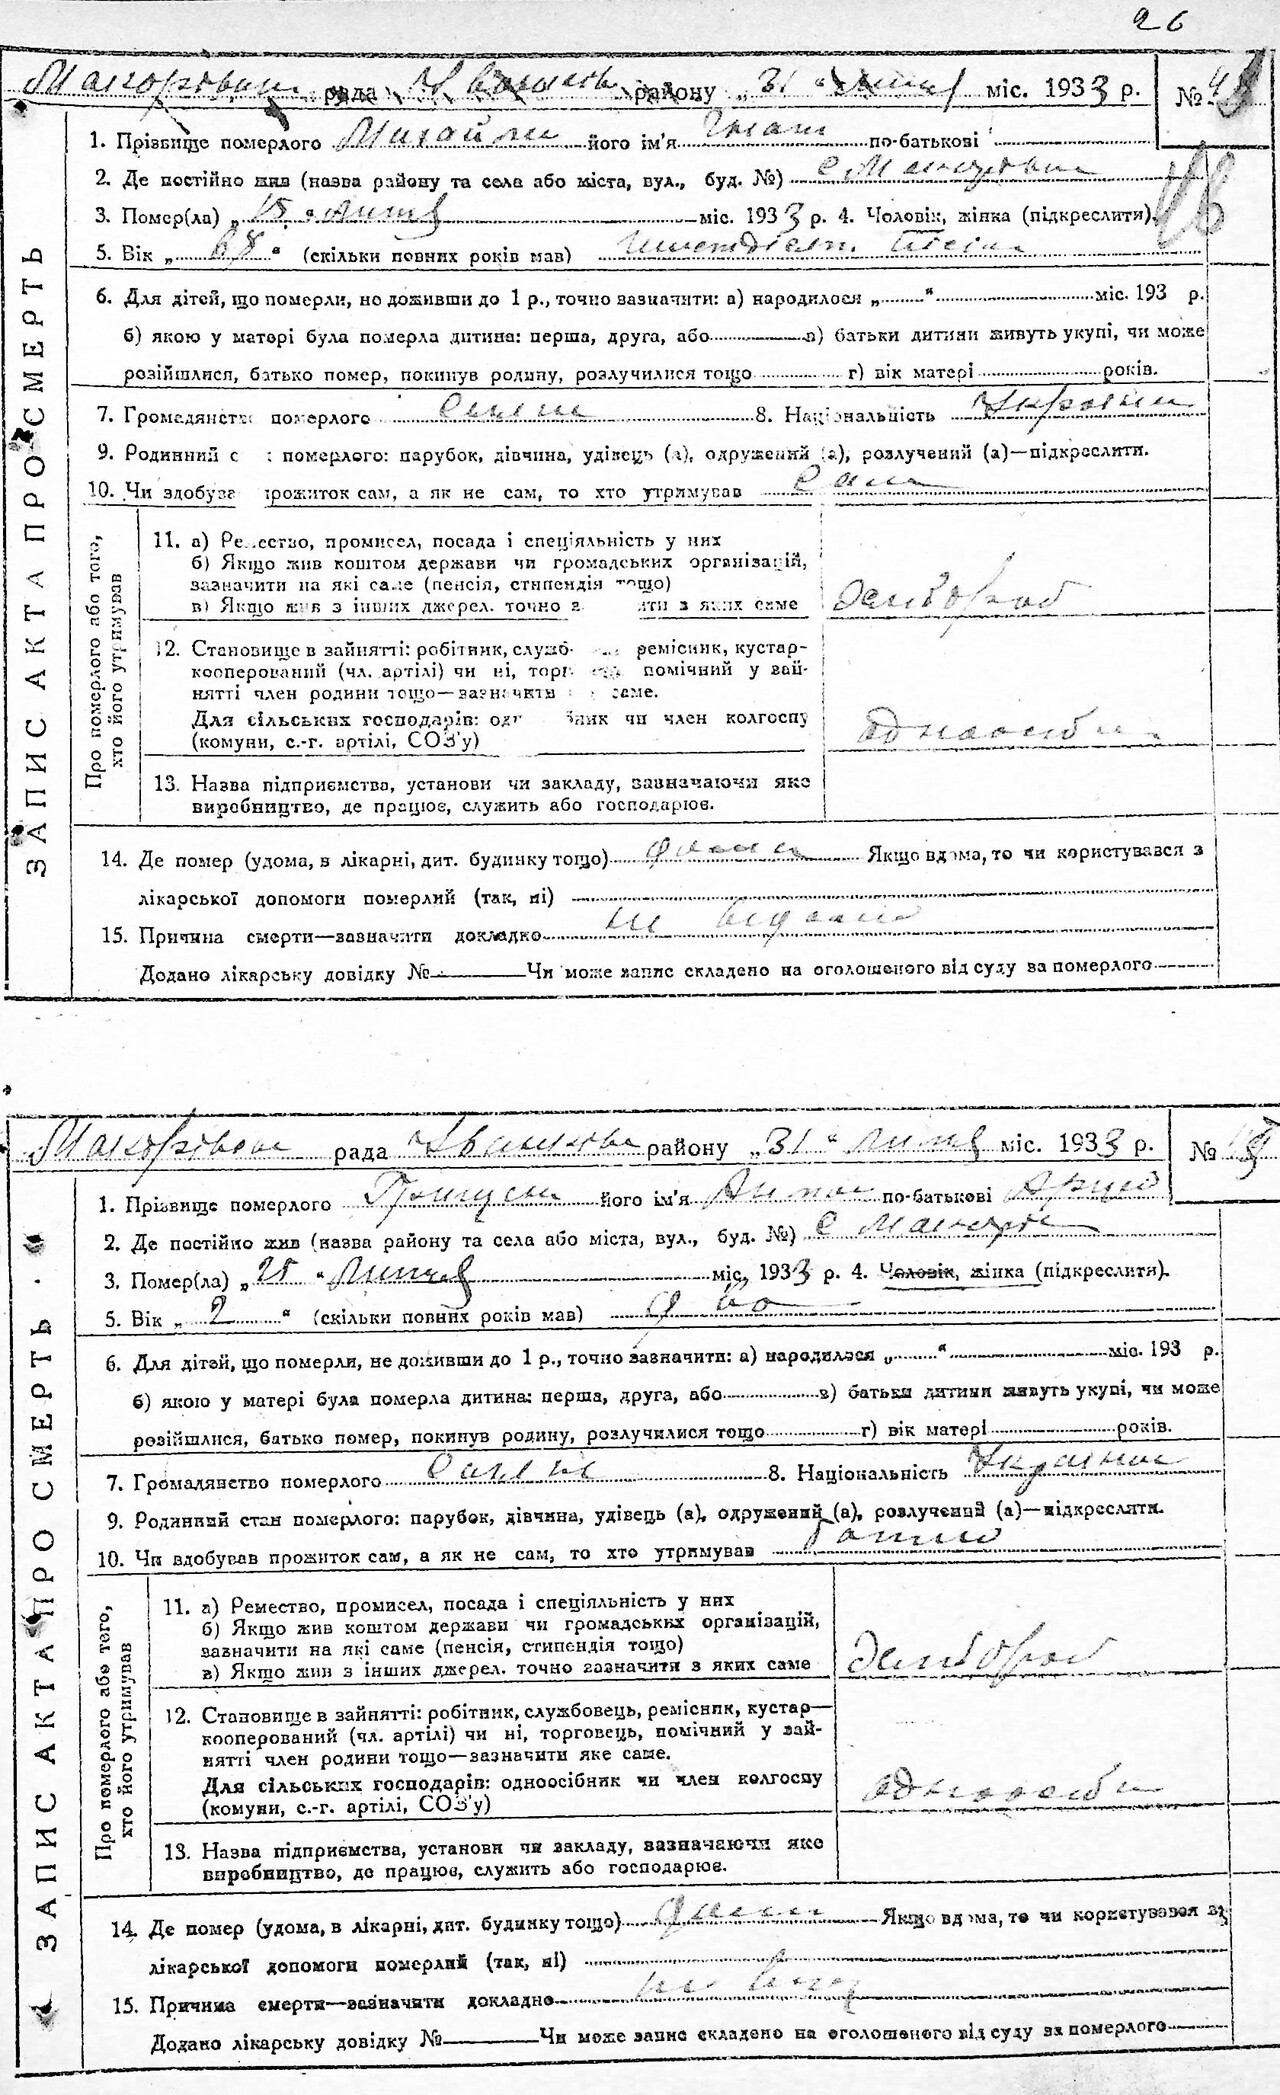 26
рада району „31“ липня міс. 1933 р. №
1. Прізвище померлого його ім'я по-батькові
2. Де постійно жив (назва району та села або міста, вул., буд. №) с
3. Помер(ла) „15“ липня міс. 1933 р. 4. Чоловік, жінка (підкреслити).
5. Вік „68“ (скільки повних років мав)
6. Для дітей, що померли, не доживши до 1 р., точно зазначити: а) народилося „ “ міс. 193 р.
б) якою у матері була померла дитина: перша, друга, або в) батьки дитини живуть укупі, чи може
розійшлися, батько помер, покинув родину, розлучилися тощо г) вік матері років.
7. Громадянство померлого 8. Національність
9. Родинний с померлого: парубок, дівчина, удівець (а), одружений (а), розлучений (а)—підкреслити.
10. Чи здобува прожиток сам, а як не сам, то хто утримував Сам
ЗАПИС АКТА ПРО СМЕРТЬ
Про померлого або того, хто його утримував
11. а) Ремество, промисел, посада і спеціяльність у них
б) Якщо жив коштом держави чи громадських організацій,
зазначити на які саме (пенсія, стипендія тощо)
в) Якщо жив з інших джерел. точно з яких саме
хлібороб
12. Становище в зайнятті: робітник, служб ремісник, кустар-
кооперований (чл. артілі) чи ні, торг помічний у зай-
нятті член родини тощо—зазначити саме.
Для сільських господарів: одн чи член колгоспу
(комуни, с.-г. артілі, СОЗ'у)
13. Назва підприємства, установи чи закладу, зазначаючи яке
виробництво, де працює, служить або господарює.
14. Де помер (удома, в лікарні, дит. будинку тощо) дома Якщо вдома, то чи користувався з
лікарської допомоги померлий (так, ні)
15. Причина смерти—зазначити докладно не відомо
Додано лікарську довідку № Чи може запис складено на оголошеного від суду за померлого
рада району „31“ липня міс. 1933 р. №
1. Прізвище померлого його ім'я по-батькові
2. Де постійно жив (назва району та села або міста, вул., буд. №) с
3. Помер(ла) „25“ липня міс. 1933 р. 4. Чоловік, жінка (підкреслити).
5. Вік „2“ (скільки повних років мав) два
6. Для дітей, що померли, не доживши до 1 р., точно зазначити: а) народилася „ “ міс. 193 р.
б) якою у матері була померла дитина: перша, друга, або в) батьки дитини живуть укупі, чи може
розійшлися, батько помер, покинув родину, розлучилися тощо г) вік матері років.
7. Громадянство померлого 8. Національність
9. Родинний стан померлого: парубок, дівчина, удівець (а), одружений (а), розлучений (а)—підкреслити.
10. Чи здобував прожиток сам, а як не сам, то хто утримував
ЗАПИС АКТА ПРО СМЕРТЬ
Про померлого або того, хто його утримував
11. а) Ремество, промисел, посада і спеціяльність у них
б) Якщо жив коштом держави чи громадських організацій,
зазначити на які саме (пенсія, стипендія тощо)
в) Якщо жив з інших джерел. точно зазначити з яких саме
хлібороб
12. Становище в зайнятті: робітник, службовець, ремісник, кустар—
кооперований (чл. артілі) чи ні, торговець, помічний у зай-
нятті член родини тощо—зазначити яке саме.
Для сільських господарів: одноосібник чи член колгоспу
(комуни, с.-г. артілі, СОЗ'у)
13. Назва підприємства, установи чи закладу, зазначаючи яке
виробництво, де працює, служить або господарює.
14. Де помер (удома, в лікарні, дит. будинку тощо) дома Якщо вдома, то чи користувався з
лікарської допомоги померлий (так, ні)
15. Причина смерти—зазначити докладно не
Додано лікарську довідку № Чи може запис складено на оголошеного від суду за померлого